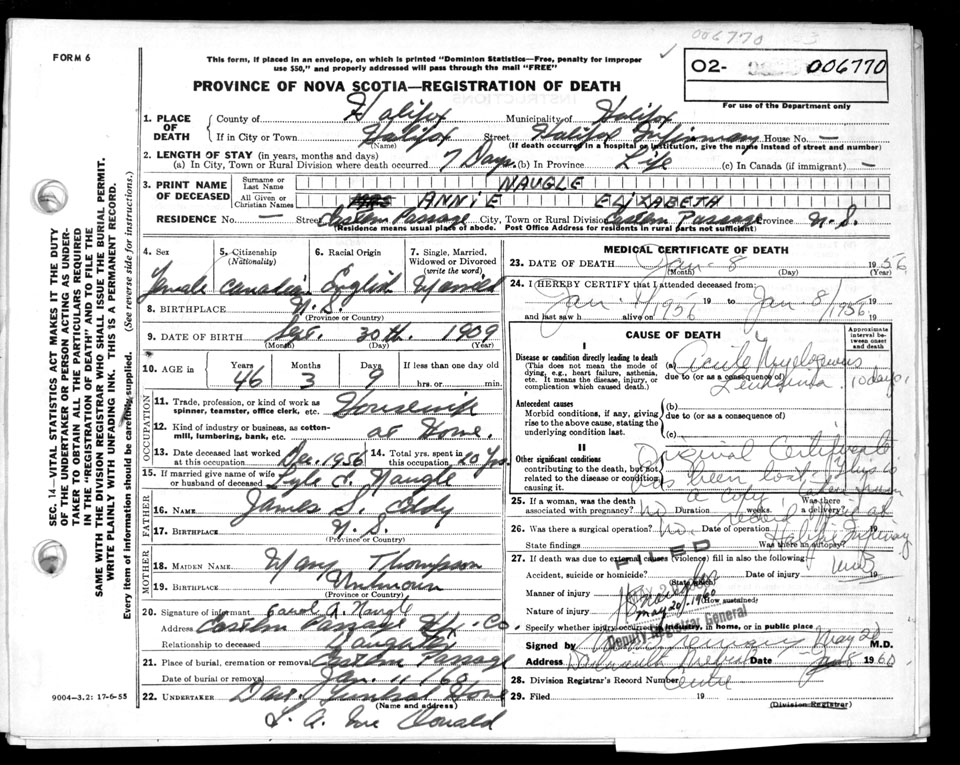 006770
FORM 6
This form, if placed in an envelope, on which is printed "Dominion Statistics—Free, penalty for improper
use $50," and properly addressed will pass through the mail "FREE"
02- 006770
For use of the Department only
PROVINCE OF NOVA SCOTIA—REGISTRATION OF DEATH
1. PLACE OF DEATH
County of Halifax Municipality of Halifax
If in City or Town Halifax Street Halifax Infirmary House No. —
(Name) (If death occurred in a hospital or institution, give the name instead of street and number)
2. LENGTH OF STAY (in years, months and days)
(a) In City, Town or Rural Division where death occurred 7 Days (b) In Province Life (c) In Canada (if immigrant) —
3. PRINT NAME OF DECEASED
Surname or Last Name NAUGLE
All Given or Christian Names ANNIE ELIZABETH
RESIDENCE No. — Street Eastern Passage City, Town or Rural Division Eastern Passage Province N.S.
(Residence means usual place of abode. Post Office Address for residents in rural parts not sufficient)
SEC. 14—VITAL STATISTICS ACT MAKES IT THE DUTY
OF THE UNDERTAKER OR PERSON ACTING AS UNDER-
TAKER TO OBTAIN ALL THE PARTICULARS REQUIRED
IN THE "REGISTRATION OF DEATH" AND TO FILE THE
SAME WITH THE DIVISION REGISTRAR WHO SHALL ISSUE THE BURIAL PERMIT.
WRITE PLAINLY WITH UNFADING INK. THIS IS A PERMANENT RECORD.
Every item of information should be carefully supplied. (See reverse side for instructions.)
4. Sex 5. Citizenship (Nationality) 6. Racial Origin 7. Single, Married, Widowed or Divorced (write the word)
Female Canadian English Married
8. BIRTHPLACE N.S.
(Province or Country)
9. DATE OF BIRTH Sept. 30th. 1909
(Month) (Day) (Year)
10. AGE in Years Months Days If less than one day old
46 3 9 hrs. or min.
OCCUPATION
11. Trade, profession, or kind of work as
spinner, teamster, office clerk, etc. Housewife
12. Kind of industry or business, as cotton-
mill, lumbering, bank, etc. at Home.
13. Date deceased last worked at this occupation Dec. 1956 14. Total yrs. spent in this occupation 20 Yrs.
15. If married give name of wife
or husband of deceased Lyle C. Naugle
FATHER
16. NAME James S. Eddy
17. BIRTHPLACE N.S.
(Province or Country)
MOTHER
18. MAIDEN NAME Mary Thompson
19. BIRTHPLACE Unknown
(Province or Country)
20. Signature of informant Carol A. Naugle
Address Eastern Passage Hx. Co.
Relationship to deceased Daughter
21. Place of burial, cremation or removal Eastern Passage
Date of burial or removal Jan. 11
22. UNDERTAKER Dart. Funeral Home
(Name and address)
9004—3.2: 17-6-55
MEDICAL CERTIFICATE OF DEATH
23. DATE OF DEATH Jan. 8 1956
(Month) (Day) (Year)
24. I HEREBY CERTIFY that I attended deceased from:
Jan. 1/1956 19 to Jan 8/1956 19
and last saw h alive on 19
CAUSE OF DEATH
Approximate interval between onset and death
I
Disease or condition directly leading to death
(This does not mean the mode of
dying, e.g., heart failure, asthenia,
etc. It means the disease, injury, or
complication which caused death.)
(a) Acute Myelogenous
due to (or as a consequence of)
Leukaemia 10 days
Antecedent causes
Morbid conditions, if any, giving
rise to the above cause, stating the
underlying condition last.
(b)
due to (or as a consequence of)
(c)
II
Other significant conditions
contributing to the death, but not
related to the disease or condition
causing it.
Original Certificate
has been lost. This is
a copy taken from
record at
Halifax Infirmary
25. If a woman, was the death
associated with pregnancy? No Duration weeks Was there a delivery?
26. Was there a surgical operation? No. Date of operation 19
State findings Was there an autopsy?
27. If death was due to external causes (violence) fill in also the following:
Accident, suicide or homicide? (State which) Date of injury 19
Manner of injury (How sustained)
Nature of injury
Specify whether injury occurred in industry, in home, or in public place
FILED
May 20, 1960
Deputy Registrar General
Signed by M.D.
May 20
Address Date 1960
28. Division Registrar's Record Number
29. Filed 19
(Division Registrar)